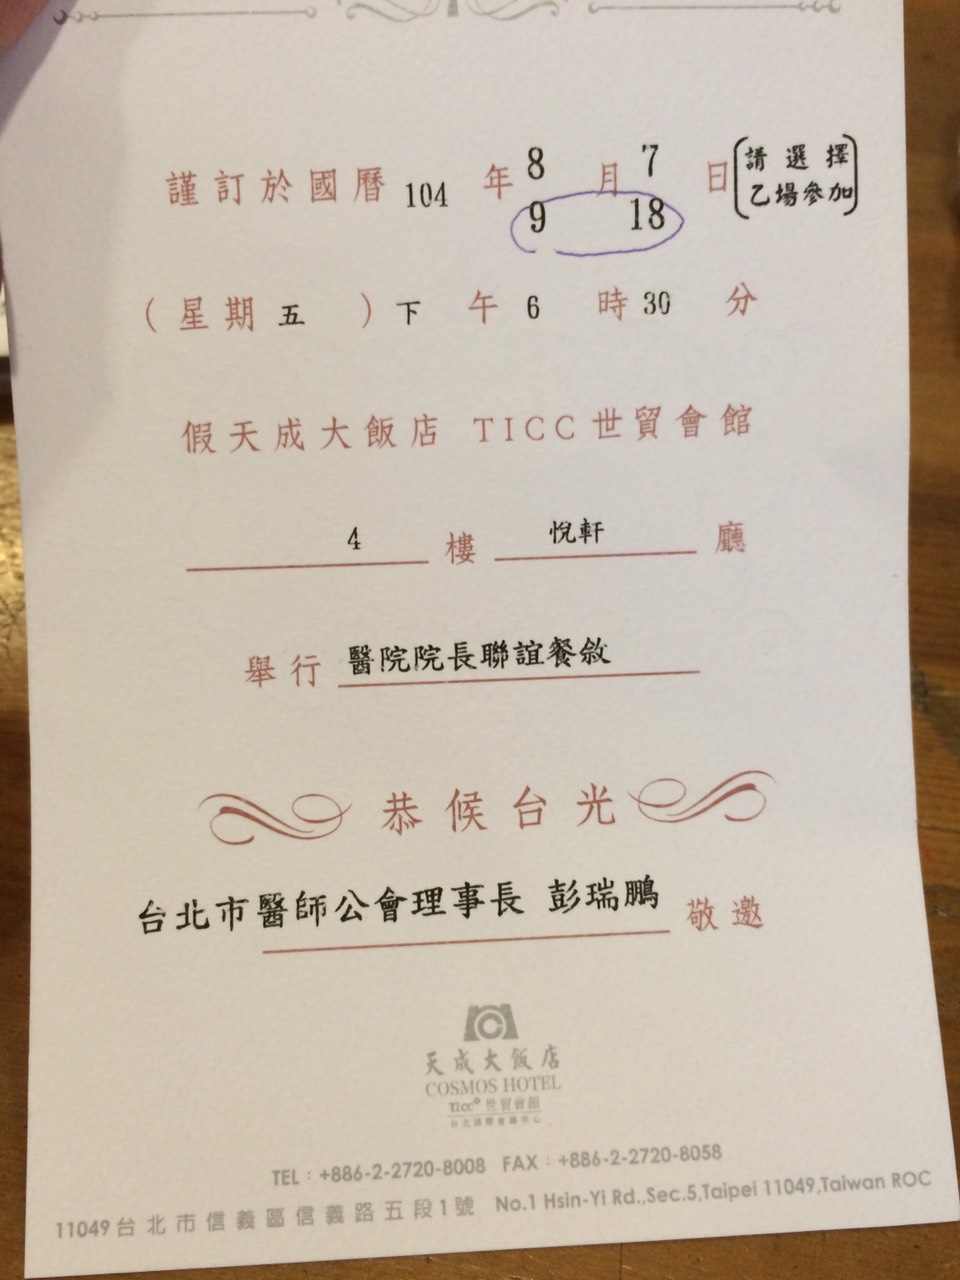 謹訂於國曆 104 年 8 月 7 日 (請選擇
9 18 乙場參加)
(星期五)下午6時30分
假天成大飯店 TICC世貿會館
4 樓 悅軒 廳
舉行 醫院院長聯誼餐敘
恭候台光
台北市醫師公會理事長 彭瑞鵬 敬邀
天成大飯店
COSMOS HOTEL
TICC 世貿會館
台北國際會議中心
TEL：+886-2-2720-8008 FAX：+886-2-2720-8058
11049台北市信義區信義路五段1號 No.1 Hsin-Yi Rd.,Sec.5,Taipei 11049,Taiwan ROC